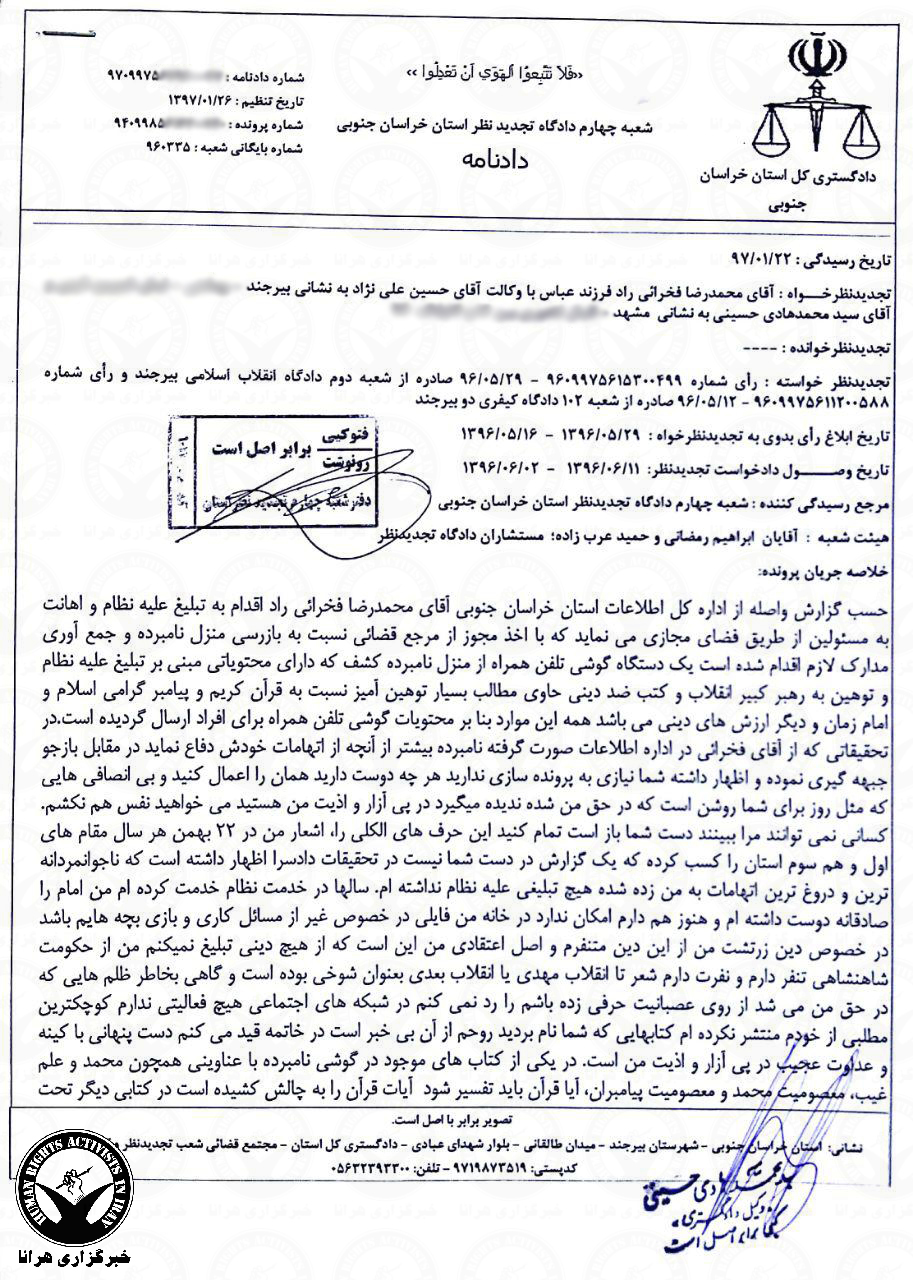 «فَلاَ تَتَّبِعوُا الهَوَي اَنْ تَعْدِلُوا»
شعبه چهارم دادگاه تجدید نظر استان خراسان جنوبی
دادنامه
دادگستری کل استان خراسان
جنوبی
شماره دادنامه : ۹۷۰۹۹۷۵
تاریخ تنظیم : ۱۳۹۷/۰۱/۲۶
شماره پرونده : ۹۴۰۹۹۸۵
شماره بایگانی شعبه : ۹۶۰۳۳۵
تاریخ رسیدگی : ۹۷/۰۱/۲۲
تجدیدنظرخـــواه : آقای محمدرضا فخرائی راد فرزند عباس با وکالت آقای حسین علی نژاد به نشانی بیرجند
آقای سید محمدهادی حسینی به نشانی مشهد
تجدیدنظرخوانده : ----
تجدیدنظر خواسته : رأی شماره ۹۶۰۹۹۷۵۶۱۵۳۰۰۴۹۹ – ۹۶/۰۵/۲۹ صادره از شعبه دوم دادگاه انقلاب اسلامی بیرجند و رأی شماره
۹۶۰۹۹۷۵۶۱۱۲۰۰۵۸۸ – ۹۶/۰۵/۱۲ صادره از شعبه ۱۰۲ دادگاه کیفری دو بیرجند
تاریخ ابلاغ رأی بدوی به تجدیدنظرخواه : ۱۳۹۶/۰۵/۲۹ – ۱۳۹۶/۰۵/۱۶
تاریخ وصـــــول دادخواست تجدیدنظر: ۱۳۹۶/۰۶/۱۱ – ۱۳۹۶/۰۶/۰۲
مرجع رسیدگی کننده : شعبه چهارم دادگاه تجدیدنظر استان خراسان جنوبی
هیئت شعبه : آقایان ابراهیم رمضانی و حمید عرب زاده؛ مستشاران دادگاه تجدیدنظر
فتوکپی
رونوشت
برابر اصل است
دفتر شعبه چهارم تجدید نظر استان
خلاصه جریان پرونده:
حسب گزارش واصله از اداره کل اطلاعات استان خراسان جنوبی آقای محمدرضا فخرائی راد اقدام به تبلیغ علیه نظام و اهانت
به مسئولین از طریق فضای مجازی می نماید که با اخذ مجوز از مرجع قضائی نسبت به بازرسی منزل نامبرده و جمع آوری
مدارک لازم اقدام شده است یک دستگاه گوشی تلفن همراه از منزل نامبرده کشف که دارای محتویاتی مبنی بر تبلیغ علیه نظام
و توهین به رهبر کبیر انقلاب و کتب ضد دینی حاوی مطالب بسیار توهین آمیز نسبت به قرآن کریم و پیامبر گرامی اسلام و
امام زمان و دیگر ارزش های دینی می باشد همه این موارد بنا بر محتویات گوشی تلفن همراه برای افراد ارسال گردیده است.در
تحقیقاتی که از آقای فخرائی در اداره اطلاعات صورت گرفته نامبرده بیشتر از آنچه از اتهامات خودش دفاع نماید در مقابل بازجو
جبهه گیری نموده و اظهار داشته شما نیازی به پرونده سازی ندارید هر چه دوست دارید همان را اعمال کنید و بی انصافی هایی
که مثل روز برای شما روشن است که در حق من شده ندیده میگیرد در پی آزار و اذیت من هستید می خواهید نفس هم نکشم.
کسانی نمی توانند مرا ببینند دست شما باز است تمام کنید این حرف های الکلی را، اشعار من در ۲۲ بهمن هر سال مقام های
اول و هم سوم استان را کسب کرده که یک گزارش در دست شما نیست در تحقیقات دادسرا اظهار داشته است که ناجوانمردانه
ترین و دروغ ترین اتهامات به من زده شده هیچ تبلیغی علیه نظام نداشته ام. سالها در خدمت نظام خدمت کرده ام من امام را
صادقانه دوست داشته ام و هنوز هم دارم امکان ندارد در خانه من فایلی در خصوص غیر از مسائل کاری و بازی بچه هایم باشد
در خصوص دین زرتشت من از این دین متنفرم و اصل اعتقادی من این است که از هیچ دینی تبلیغ نمیکنم من از حکومت
شاهنشاهی تنفر دارم و نفرت دارم شعر تا انقلاب مهدی یا انقلاب بعدی بعنوان شوخی بوده است و گاهی بخاطر ظلم هایی که
در حق من می شد از روی عصبانیت حرفی زده باشم را رد نمی کنم در شبکه های اجتماعی هیچ فعالیتی ندارم کوچکترین
مطلبی از خودم منتشر نکرده ام کتابهایی که شما نام بردید روحم از آن بی خبر است در خاتمه قید می کنم دست پنهانی با کینه
و عداوت عجیب در پی آزار و اذیت من است. در یکی از کتاب های موجود در گوشی نامبرده با عناوینی همچون محمد و علم
غیب، معصومیت محمد و معصومیت پیامبران، آیا قرآن باید تفسیر شود آیات قرآن را به چالش کشیده است در کتابی دیگر تحت
تصویر برابر با اصل است.
نشانی: استان خراسان جنوبی – شهرستان بیرجند – میدان طالقانی – بلوار شهدای عبادی – دادگستری کل استان – مجتمع قضائی شعب تجدیدنظر و
کدپستی: ۹۷۱۹۸۷۳۵۱۹ – تلفن: ۰۵۶۳۲۳۹۳۳۰۰
سید محمد هادی حسینی
وکیل دادگستری
برابر اصل است
HUMAN RIGHTS ACTIVISTS IN IRAN
خبرگزاری هرانا